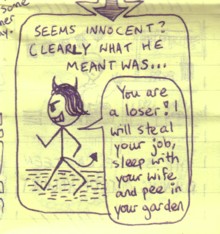 some
ner
ay.
SEEMS INNOCENT?
CLEARLY WHAT HE
MEANT WAS...
You are
a loser! I
will steal
your job,
sleep with
your wife
and pee in
your garden